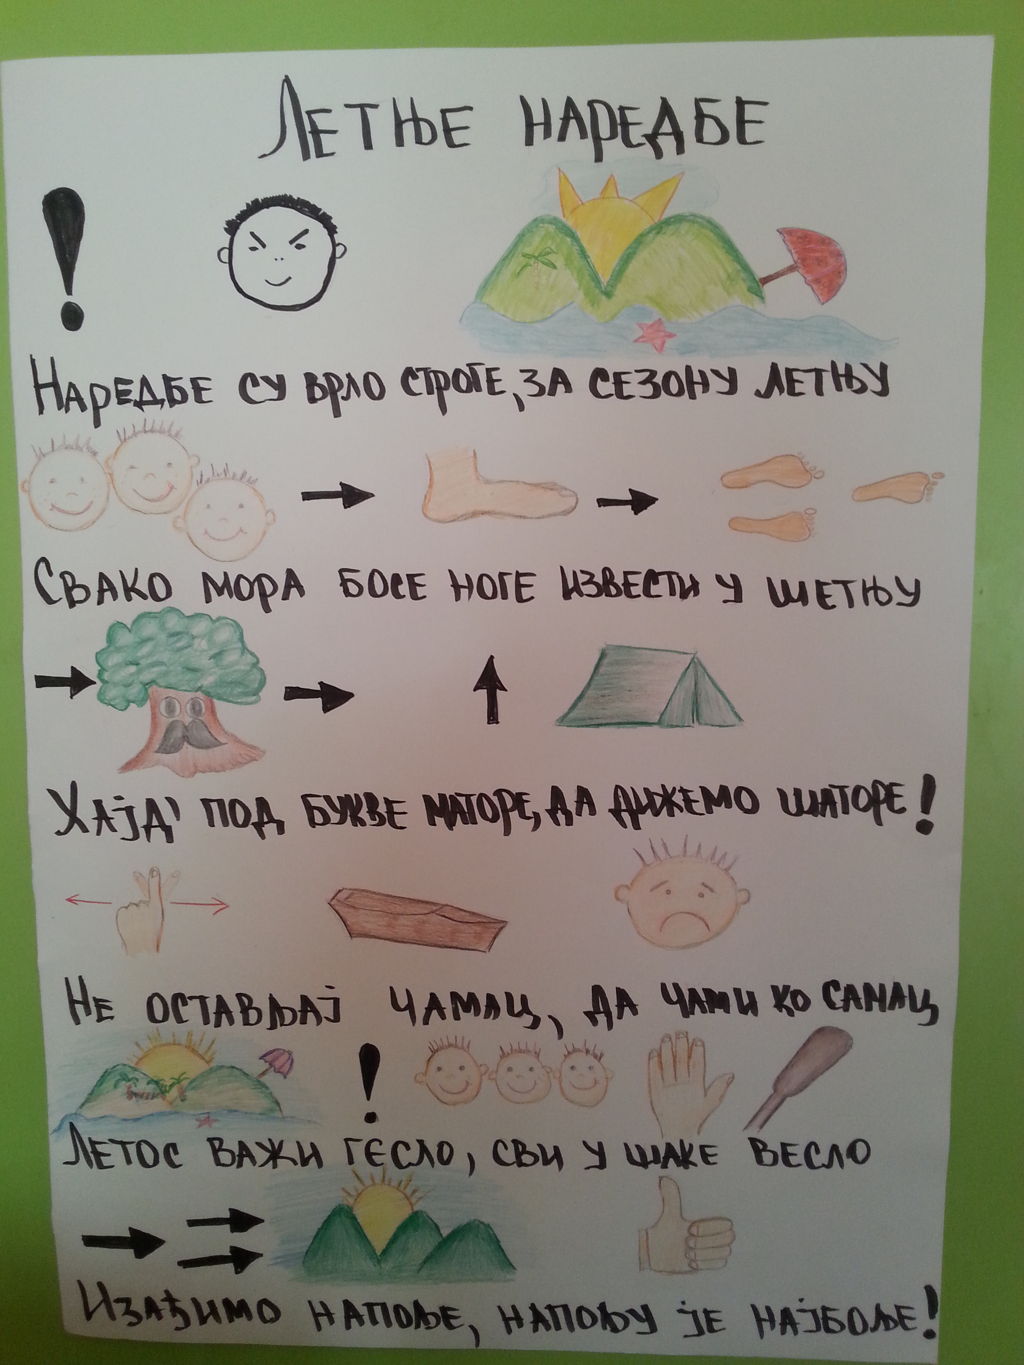 Летње наредбе
Наредбе су врло строге, за сезону летњу
Свако мора босе ноге извести у шетњу
Хајд' под букве маторе, да дижемо шаторе!
Не остављај чамац, да чами ко самац
Летос важи гесло, сви у шаке весло
Изађимо напоље, напољу је најбоље!